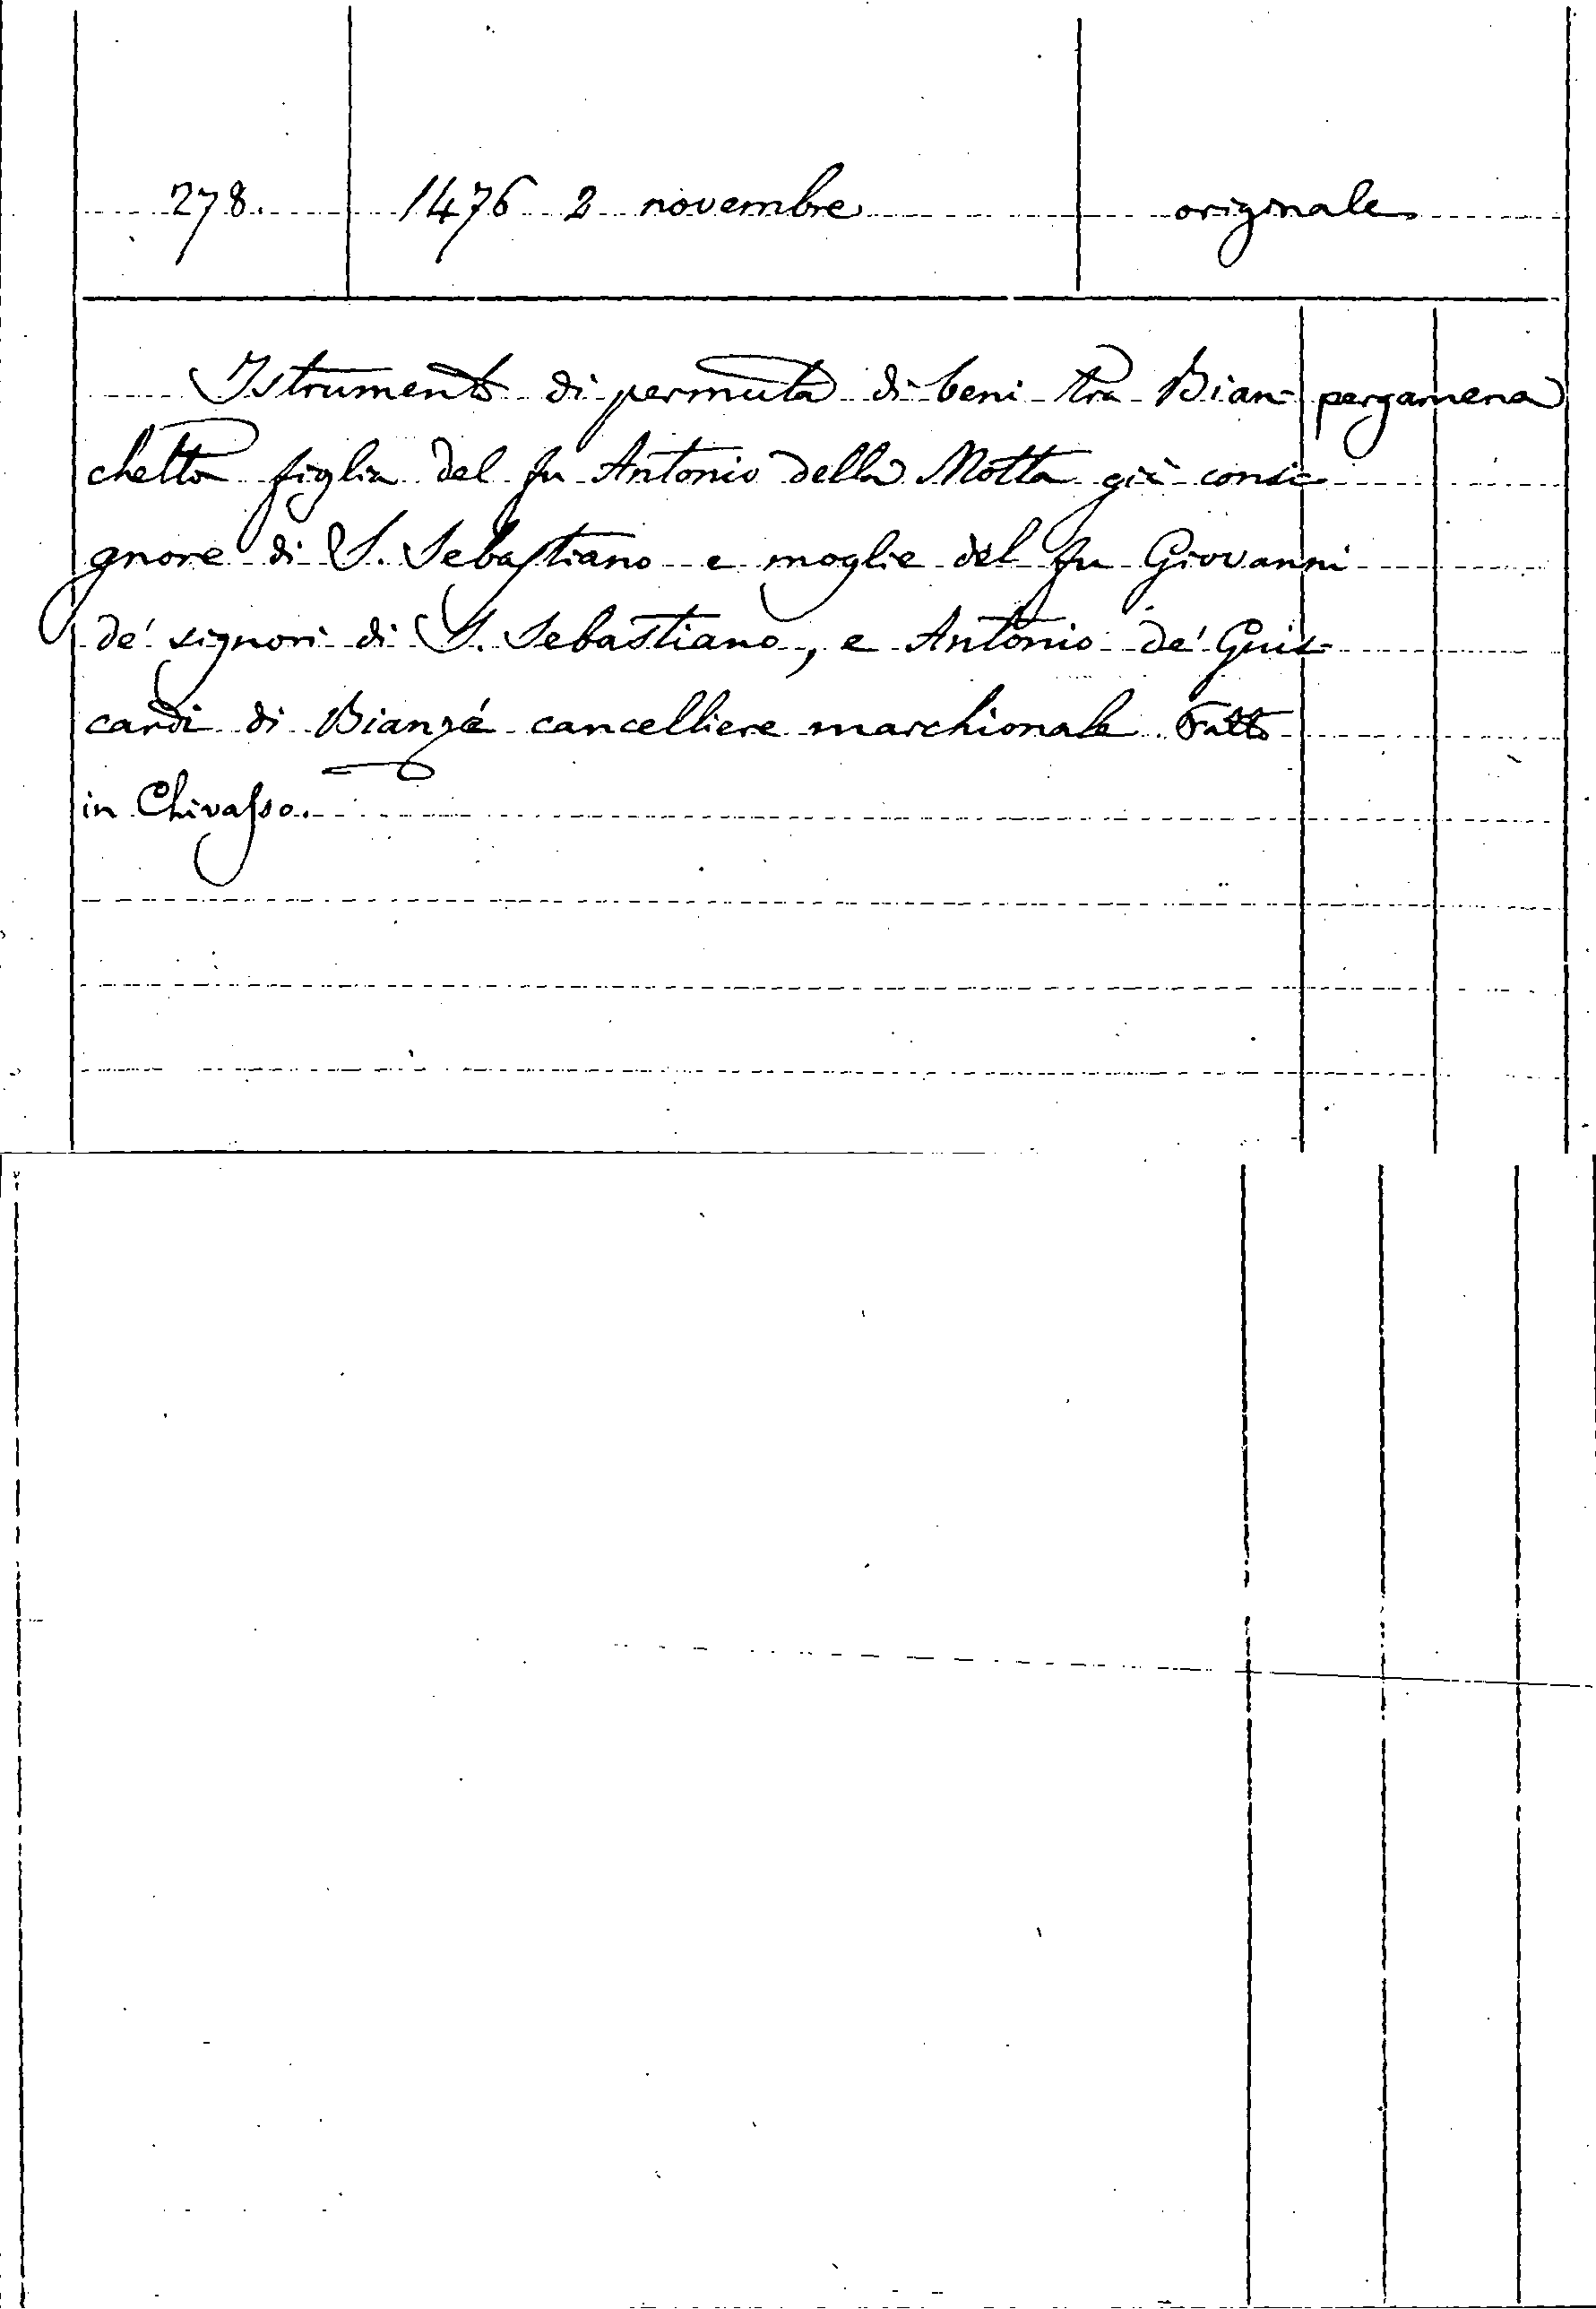 278. 1476 2 novembre originale
Istrumento di permuta di beni tra Bian- pergamena
chetta figlia del fu Antonio della Motta già consi-
gnore di S. Sebastiano e moglie del fu Giovanni
de' signori di S. Sebastiano, e Antonio de' Guis-
cardi di Bianzé cancelliere marchionale. Fatto
in Chivasso.